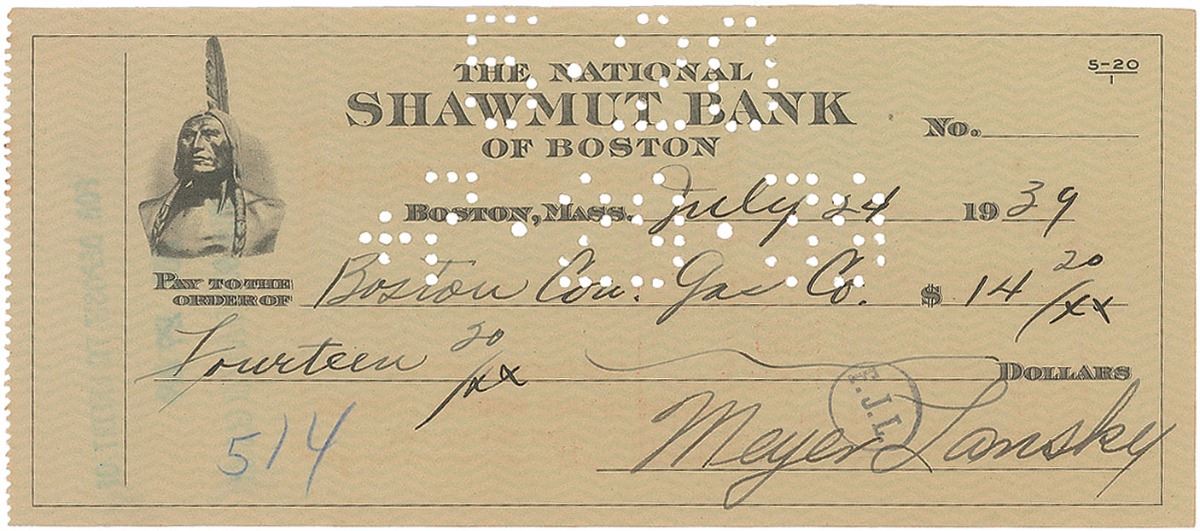 THE NATIONAL
SHAWMUT BANK
OF BOSTON
5-20
1
No.
BOSTON, MASS. July 24 1939
PAY TO THE
ORDER OF Boston Con. Gas Co. $ 14 20/xx
Fourteen 20/xx DOLLARS
E.J.L.
514
Meyer Lansky